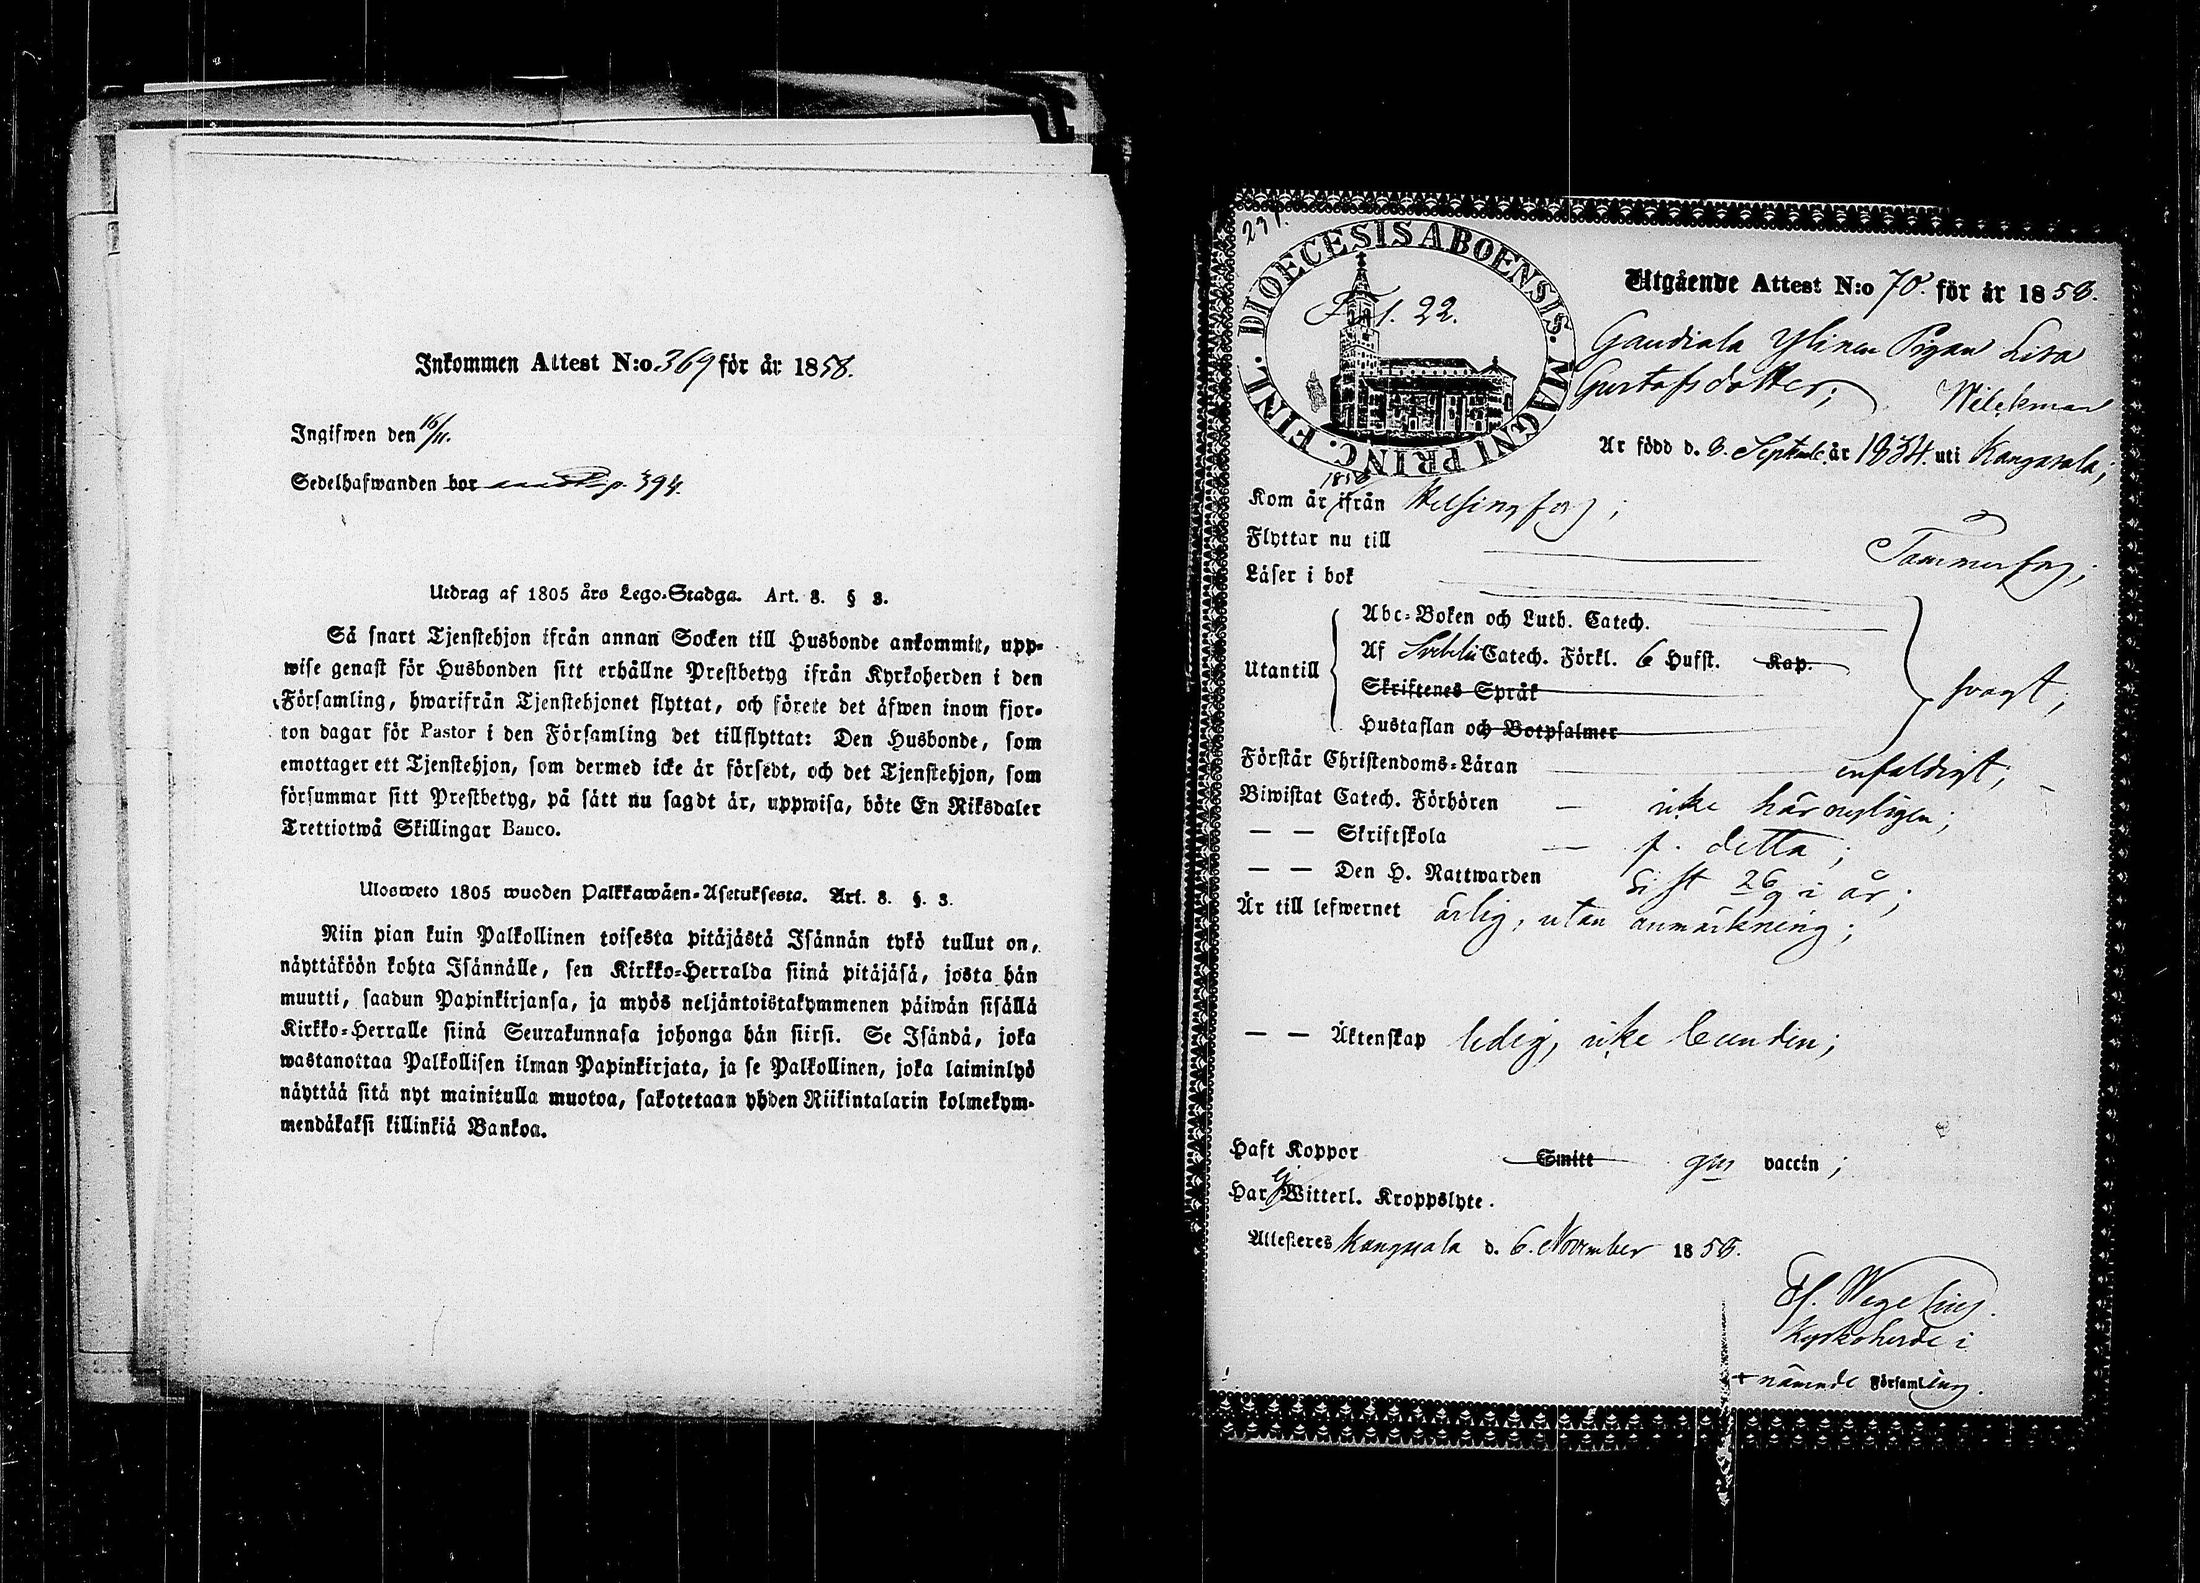 Inkommen Attest N:o 369 för år 1858.
Ingifwen den 16/11.
Sedelhafwanden bor p. 394.
Utdrag af 1805 års Lego-Stadga. Art. 8. § 3.
Så snart Tjenstehjon ifrån annan Socken till Husbonde ankommit, upp-
wise genast för Husbonden sitt erhållne Prestbetyg ifrån Kyrkoherden i den
Församling, hwarifrån Tjenstehjonet flyttat, och förete det äfwen inom fjor-
ton dagar för Pastor i den Församling det tillflyttat: Den Husbonde, som
emottager ett Tjenstehjon, som dermed icke är försedt, och det Tjenstehjon, som
försummar sitt Prestbetyg, på sätt nu sagdt är, uppwisa, böte En Riksdaler
Trettiotwå Skillingar Banco.
Ulosweto 1805 wuoden Palkkawäen-Asetuksesta. Art. 8. §. 3.
Niin pian kuin Palkollinen toisesta pitäjästä Isännän tykö tullut on,
näyttäköön kohta Isännälle, sen Kirkko-Herralda siinä pitäjäsä, josta hän
muutti, saadun Papinkirjansa, ja myös neljäntoistakymmenen päiwän sisällä
Kirkko-Herralle siinä Seurakunnasa johonga hän siirsi. Se Isändä, joka
wastanottaa Palkollisen ilman Papinkirjata, ja se Palkollinen, joka laiminlyö
näyttää sitä nyt mainitulla muotoa, sakotetaan yhden Riikintalarin kolmekym-
mendäkaksi killinkiä Bankoa.
231.
DIOECESIS ABOENSIS. MAGNI PRINC. FINL.
Fol. 22.
Utgående Attest N:o 70. för år 1858.
Gaudiala Ylinen Pigan Lisa
Gustafsdotter, Wilckman
Är född d. 8. Septemb. år 1834. uti Kangasala;
Kom år 1858 ifrån Helsingfors;
Flyttar nu till Tammerfors;
Läser i bok
Utantill
Abc-Boken och Luth. Catech.
Af Svebelii Catech. Förkl. 6 Hufst. Kap.
Skriftenes Språk
Hustaflan och Botpsalmer
svagt;
Förstår Christendoms-Läran enfaldigt;
Biwistat Catech. Förhören — icke här nyligen;
— — Skriftskola — f. detta;
— — Den H. Nattwarden sist 26/9 i år;
Är till lefwernet ärlig, utan anmärkning;
— — Äktenskap ledig, icke bunden;
Haft Koppor Smitt gm vaccin;
Har ej Witterl. Kroppslyte.
Attesteres Kangasala d. 6. November 1858.
Wegelius.
Kyrkoherde i
nämnde Församling.